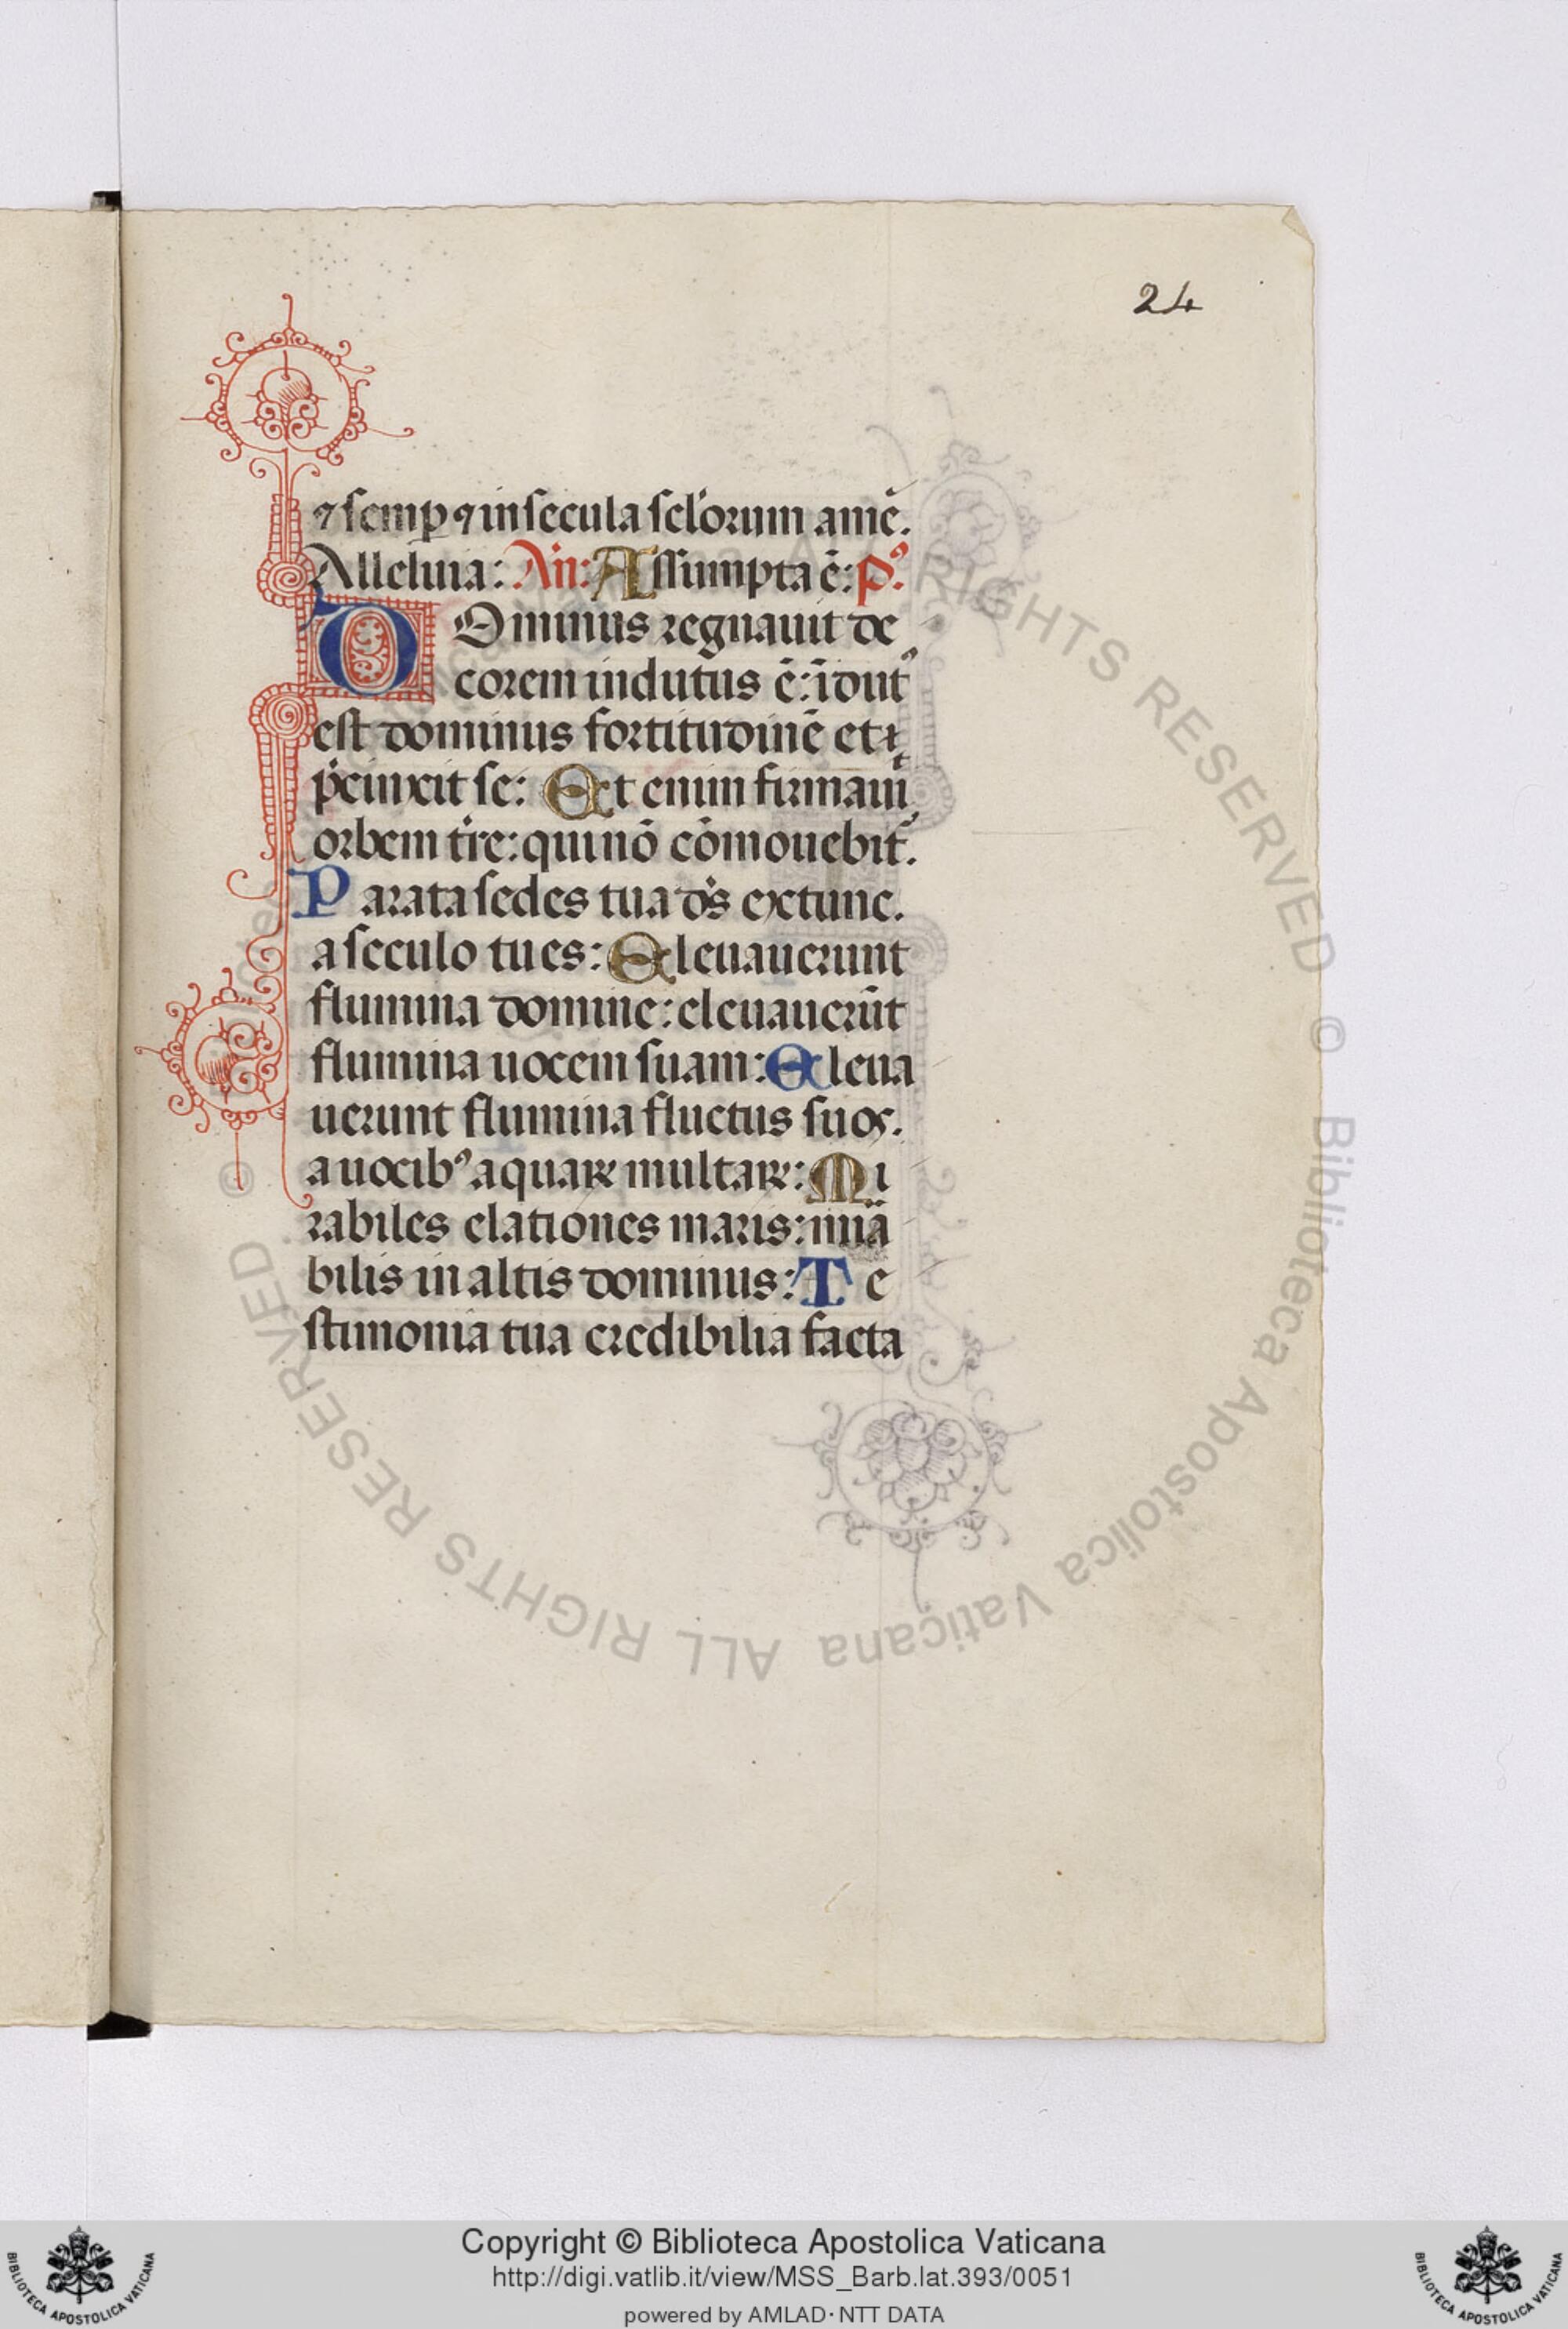 24
⁊ semp̲ ⁊ in secula scl'orum amē.
Alleluia: An̄: Assumpta ē: pꝰ.
DOminus regnauit de
corem indutus ē: īdutꝰ
est dominus fortitudinē et
p̄cinxit se: Et enim firmauit
orbem tr̄e: qui nō cōmouebit᷑.
Parata sedes tua ds̄ ex tunc.
a seculo tu es: Eleuauerunt
flumina domine: eleuauerūt
flumina uocem suam: Eleua
uerunt flumina fluctus suos.
a uocibꝰ aquaꝝ multaꝝ: Mi
rabiles elationes maris: mirā
bilis in altis dominus: Te
stimonia tua credibilia facta
© Biblioteca Apostolica Vaticana ALL RIGHTS RESERVED © Biblioteca Apostolica Vaticana ALL RIGHTS RESERVED
BIBLIOTECA APOSTOLICA VATICANA
Copyright © Biblioteca Apostolica Vaticana
http://digi.vatlib.it/view/MSS_Barb.lat.393/0051
powered by AMLAD·NTT DATA
BIBLIOTECA APOSTOLICA VATICANA